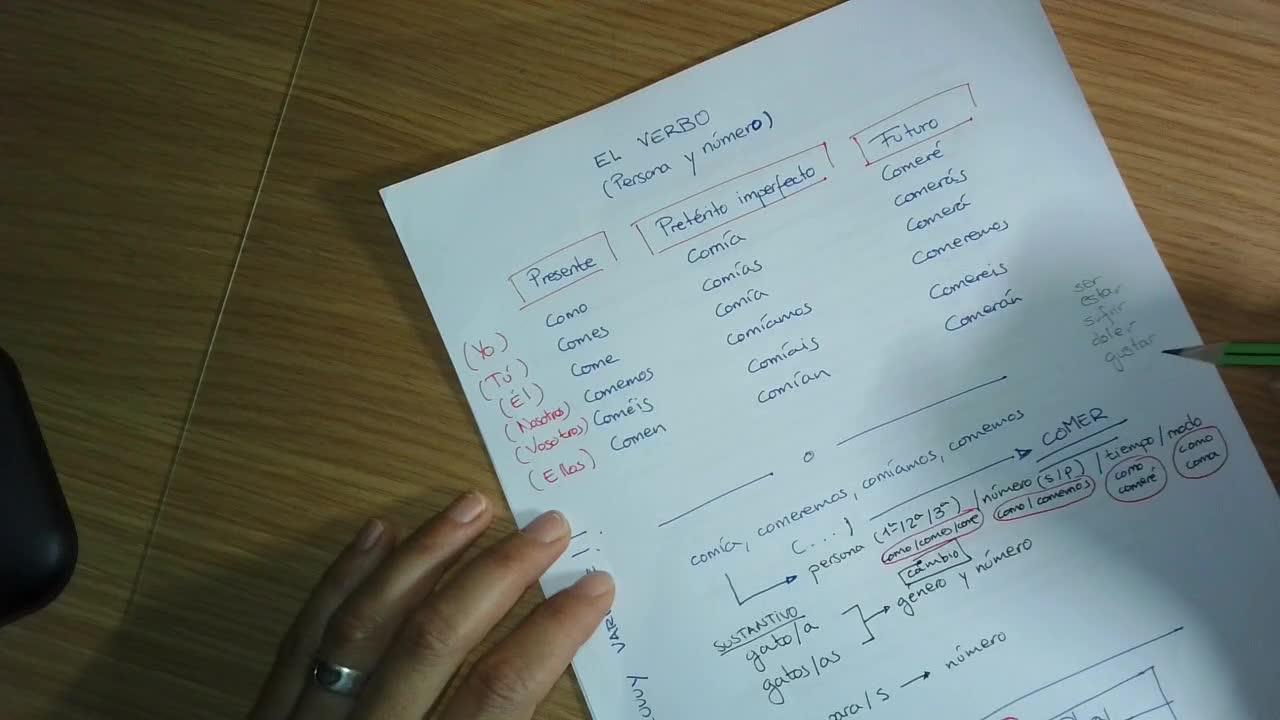 EL VERBO
(Persona y número)
Presente Pretérito imperfecto Futuro
(Yo) como comía comeré
(Tú) comes comías comerás
(Él) come comía comerá
(Nosotros) comemos comíamos comeremos
(Vosotros) coméis comíais comereis
(Ellos) comen comían comerán
ser
estar
sufrir
doler
gustar
comía, comeremos, comíamos, comemos COMER
(...)
persona (1ª/2ª/3ª) /número (S/P) /tiempo/modo
como/comes/come como/comemos como comeré como coma
cambio
SUSTANTIVO
gato/a
gatos/as
género y número
número